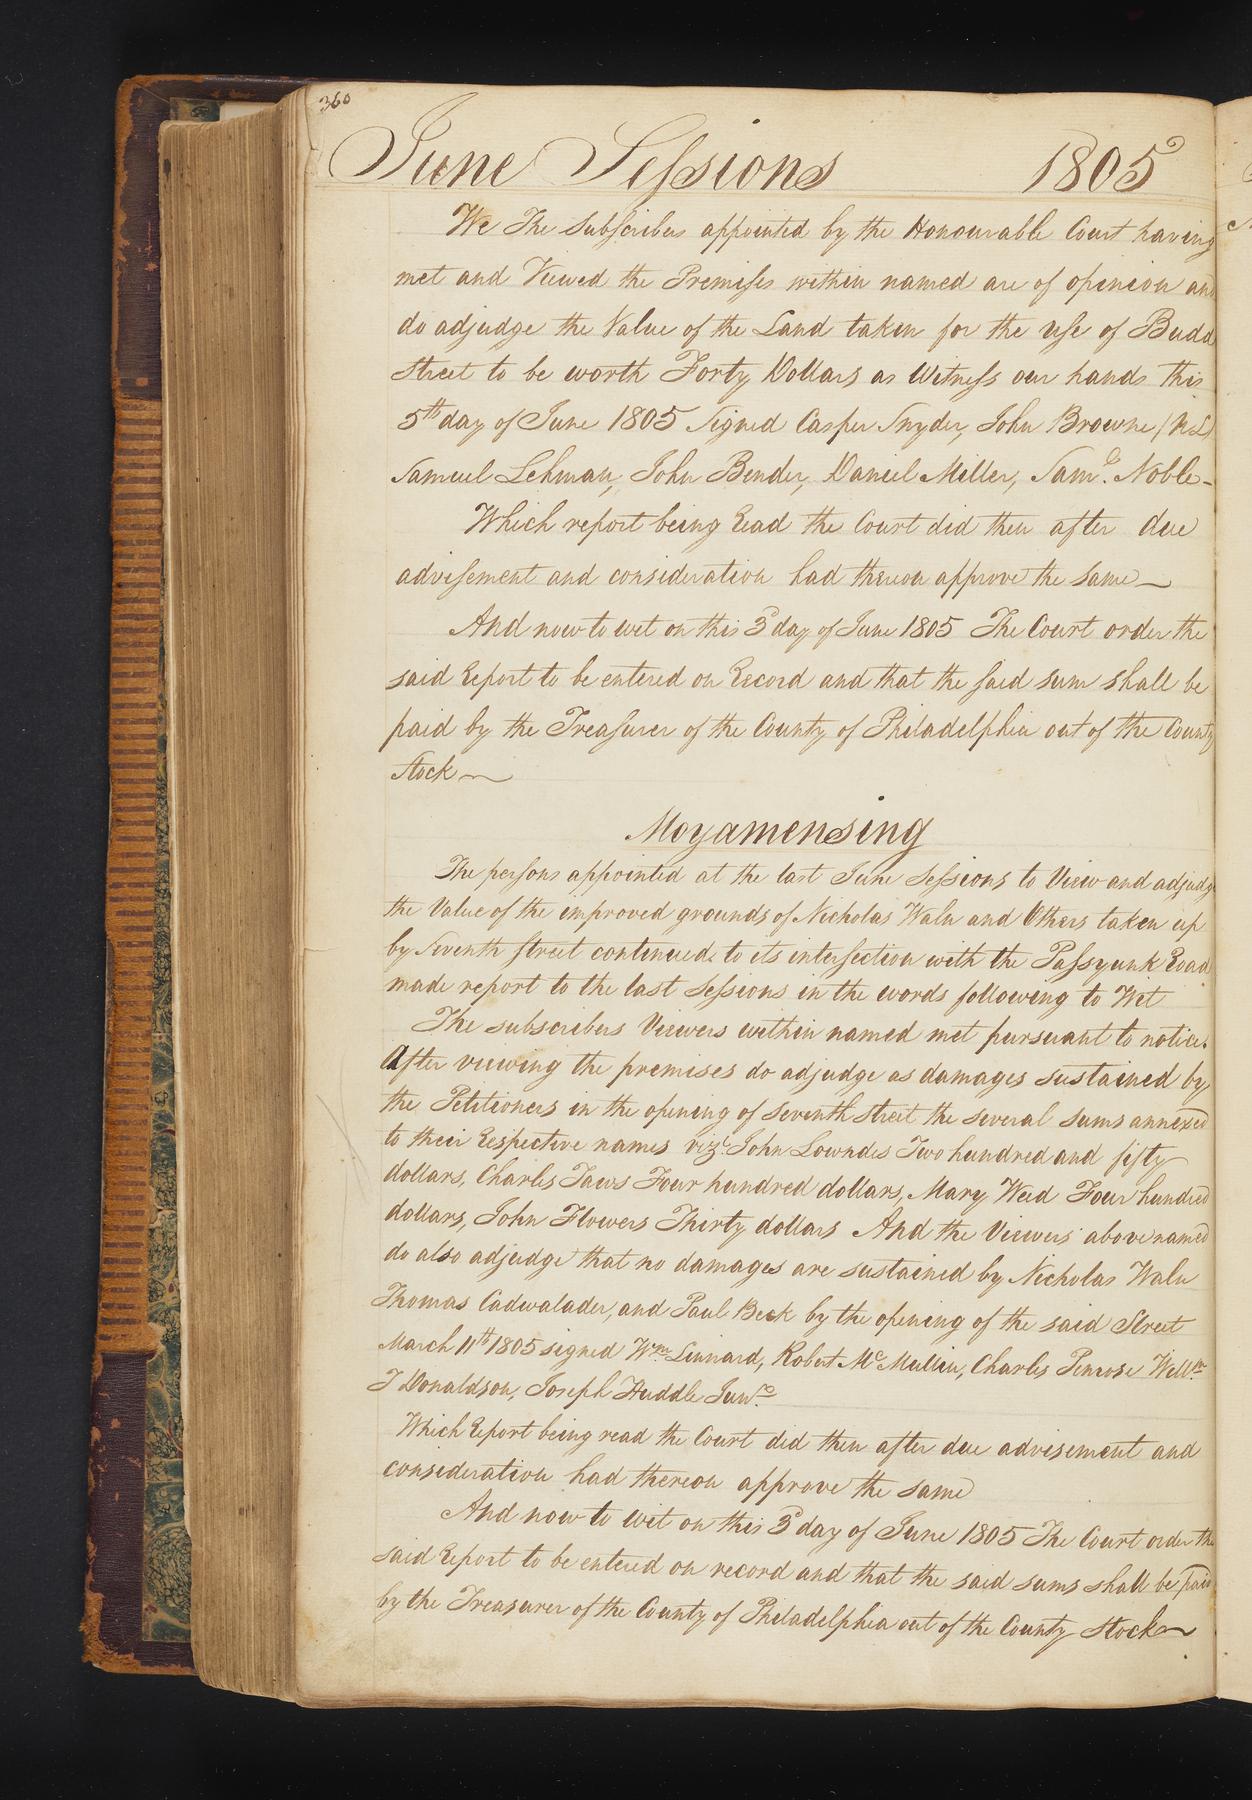 360
June Sessions 1805
We The Subscribers appointed by the Honourable Court having
met and Viewed the Premises within named are of opinion and
do adjudge the Value of the Land taken for the use of Budd
Street to be worth Forty Dollars as Witness our hands this
5th day of June 1805 Signed Casper Snyder, John Browne (NL)
Samuel Lehman, John Bender, Daniel Miller, Saml. Noble-
Which report being Read the Court did then after due
advisement and consideration had thereon approve the same
And now to wit on this 3d day of June 1805 The Court order the
said Report to be entered on Record and that the said sum shall be
paid by the Treasurer of the County of Philadelphia out of the County
Stock
Moyamensing
The persons appointed at the last June Sessions to View and adjudge
the Value of the improved grounds of Nicholas Waln and Others taken up
by Seventh Street continued to its intersection with the Passyunk Road
made report to the last Sessions in the words following to Wit
The subscribers Viewers within named met pursuant to notice.
After viewing the premises do adjudge as damages sustained by
the Petitioners in the opening of Seventh Street the several sums annexed
to their Respective names vizt John Lowndes Two hundred and fifty
dollars, Charles Taws Four hundred dollars, Mary Weed Four hundred
dollars, John Flowers Thirty dollars And the Viewers above named
do also adjudge that no damages are sustained by Nicholas Waln
Thomas Cadwalader, and Paul Beck by the opening of the said Street
March 11th 1805 signed Wm Linnard, Robert McMullin, Charles Penrose Willm
T Donaldson, Joseph Huddle Junr
Which Report being read the Court did then after due advisement and
consideration had thereon approve the same
And now to wit on this 3d day of June 1805 The Court order the
said Report to be entered on record and that the said sums shall be paid
by the Treasurer of the County of Philadelphia out of the County Stock